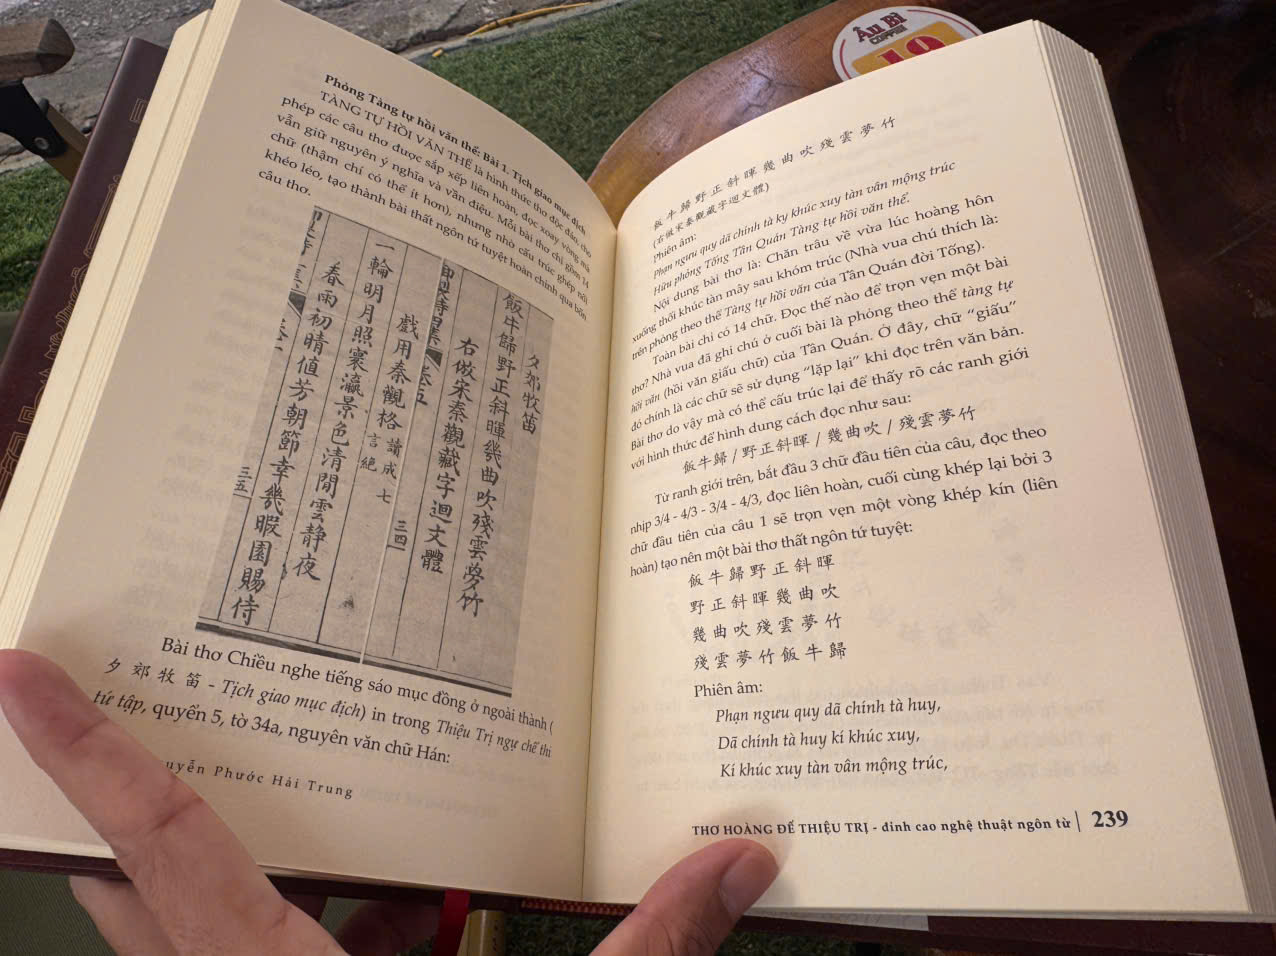 Phỏng Tàng tự hồi văn thể: Bài 1. Tịch giao mục địch
TÀNG TỰ HỒI VĂN THỂ là hình thức thơ độc đáo, cho
phép các câu thơ được sắp xếp liên hoàn, đọc xoay vòng mà
vẫn giữ nguyên ý nghĩa và vần điệu. Mỗi bài thơ chỉ gồm 14
chữ (thậm chí có thể ít hơn), nhưng nhờ cấu trúc ghép nối
khéo léo, tạo thành bài thất ngôn tứ tuyệt hoàn chỉnh qua bốn
câu thơ.
夕郊牧笛
飯牛歸野正斜暉幾曲吹殘雲夢竹
右倣宋秦觀藏字迴文體
卷五
三四
戲用秦觀格讀成七言絕
一輪明月照寰瀛景色清閒雲静夜
春雨初晴值芳朝節幸幾暇園賜侍
三五
Bài thơ Chiều nghe tiếng sáo mục đồng ở ngoài thành (
夕郊牧笛 - Tịch giao mục địch) in trong Thiệu Trị ngự chế thi
tứ tập, quyển 5, tờ 34a, nguyên văn chữ Hán:
uyễn Phước Hải Trung
飯牛歸野正斜暉幾曲吹殘雲夢竹
(右倣宋秦觀藏字迴文體)
Phiên âm:
Phạn ngưu quy dã chính tà kỵ khúc xuy tàn vân mộng trúc
Hữu phỏng Tống Tần Quán Tàng tự hồi văn thể.
Nội dung bài thơ là: Chăn trâu về vừa lúc hoàng hôn
xuống thổi khúc tàn mây sau khóm trúc (Nhà vua chú thích là:
trên phỏng theo thể Tàng tự hồi văn của Tần Quán đời Tống).
Toàn bài chỉ có 14 chữ. Đọc thế nào để trọn vẹn một bài
thơ? Nhà vua đã ghi chú ở cuối bài là phỏng theo thể tàng tự
hồi văn (hồi văn giấu chữ) của Tần Quán. Ở đây, chữ “giấu”
đó chính là các chữ sẽ sử dụng “lặp lại” khi đọc trên văn bản.
Bài thơ do vậy mà có thể cấu trúc lại để thấy rõ các ranh giới
với hình thức để hình dung cách đọc như sau:
飯牛歸 / 野正斜暉 / 幾曲吹 / 殘雲夢竹
Từ ranh giới trên, bắt đầu 3 chữ đầu tiên của câu, đọc theo
nhịp 3/4 - 4/3 - 3/4 - 4/3, đọc liên hoàn, cuối cùng khép lại bởi 3
chữ đầu tiên của câu 1 sẽ trọn vẹn một vòng khép kín (liên
hoàn) tạo nên một bài thơ thất ngôn tứ tuyệt:
飯牛歸野正斜暉
野正斜暉幾曲吹
幾曲吹殘雲夢竹
殘雲夢竹飯牛歸
Phiên âm:
Phạn ngưu quy dã chính tà huy,
Dã chính tà huy kí khúc xuy,
Kí khúc xuy tàn vân mộng trúc,
THƠ HOÀNG ĐẾ THIỆU TRỊ - đỉnh cao nghệ thuật ngôn từ | 239
Âu Bỉ
COFFEE
19